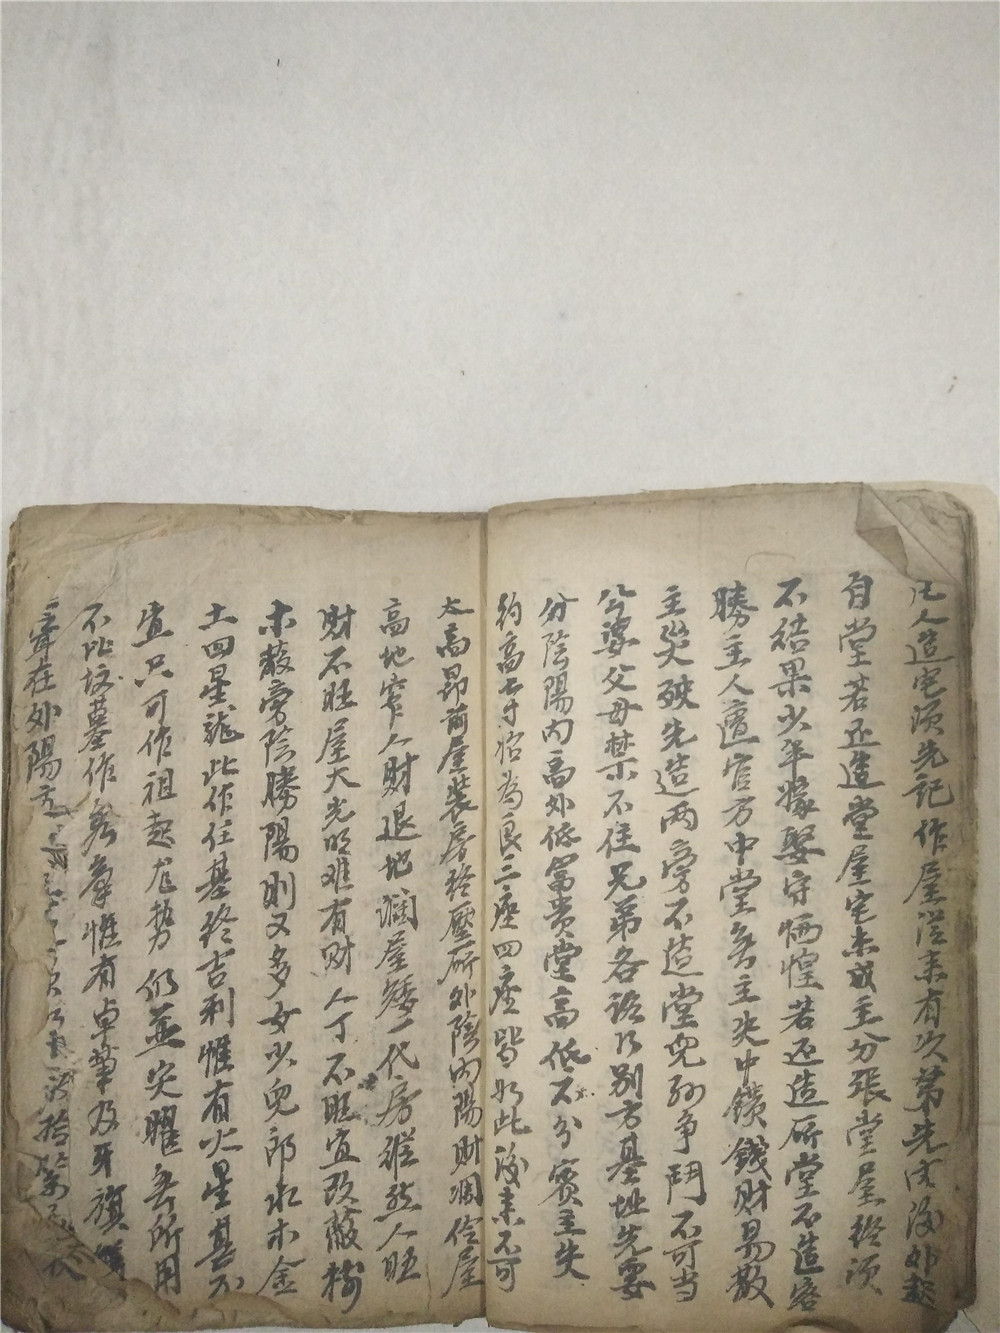 凡人造宅须先记作屋從来有次第先内後外起
自堂若还造堂屋宅未成主分張堂屋終须
不結果少年嫁娶守恓惶若还造所堂不造客
勝主人遭官方中堂無主失中饋錢財易散
主災殃先造两旁不造堂兒孙争鬥不可当
公婆父母禁不住兄弟各論别方基址先要
分陰陽内高外低富贵堂高低不分賓主失
約高七寸恰為良三座四座皆如此後来不可
太高昂前屋装房終壓所外陰内陽財凋伶屋
高地窄人财退地濶屋矮一代房縱然人旺
财不旺屋大光明难有财人丁不旺宜改蔽树
木蔽旁陰勝陽则又多女少兒郎水木金
土四星龍此作住基終吉利惟有火星甚不
宜只可作祖起龙势仍無突曜無所用
不比坟墓作無辜惟有卓筆及牙旗
聳在外陽方